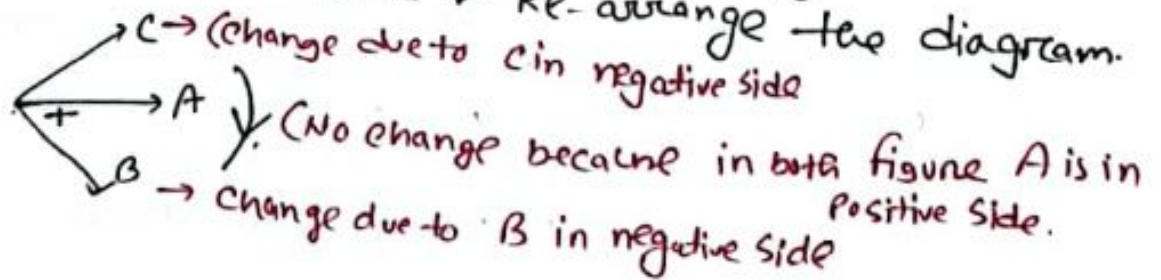 Re-arrange the diagram.
C → (Change due to C in negative side
+ A (No change because in both figure A is in
Positive side.
B → Change due to B in negative side